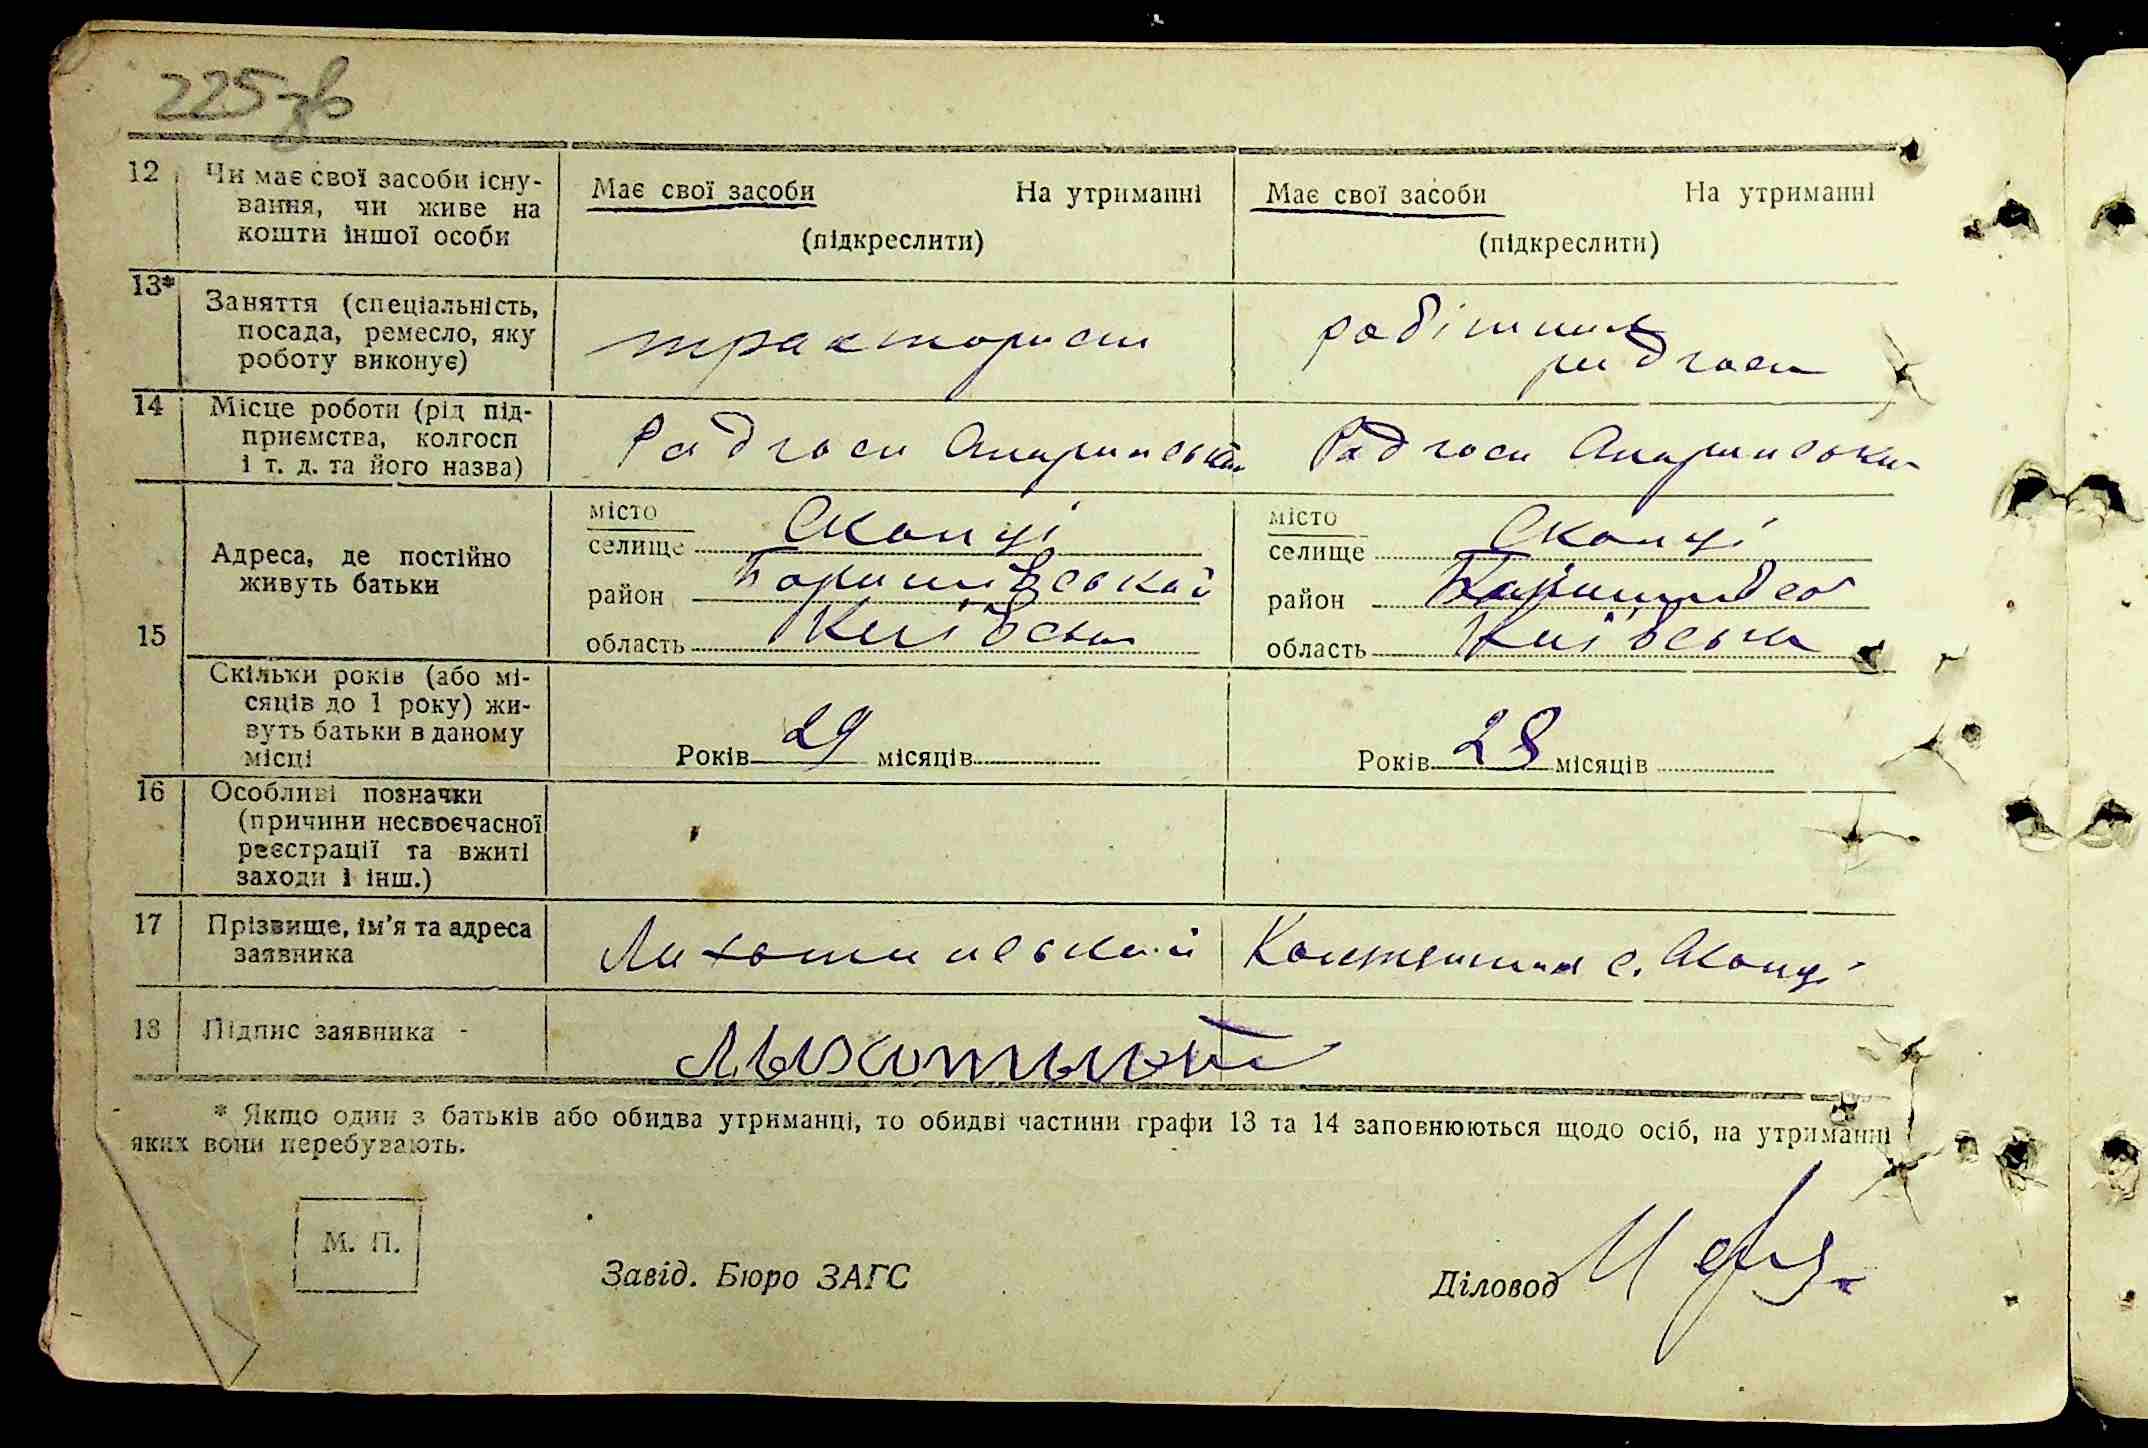 225зв
12 Чи має свої засоби існу-
вання, чи живе на
кошти іншої особи
Має свої засоби На утриманні
(підкреслити)
Має свої засоби На утриманні
(підкреслити)
13* Заняття (спеціальність,
посада, ремесло, яку
роботу виконує)
тракторист
робітник
радгосп
14 Місце роботи (рід під-
приємства, колгосп
і т. д. та його назва)
Радгосп
Радгосп
15 Адреса, де постійно
живуть батьки
місто
селище Скопці
район Баришівський
область Київська
місто
селище Скопці
район
область Київська
Скільки років (або мі-
сяців до 1 року) жи-
вуть батьки в даному
місці
Років 29 місяців
Років 28 місяців
16 Особливі позначки
(причини несвоєчасної
реєстрації та вжиті
заходи і інш.)
17 Прізвище, ім'я та адреса
заявника
с. Скопці
18 Підпис заявника -
* Якщо один з батьків або обидва утриманці, то обидві частини графи 13 та 14 заповнюються щодо осіб, на утриманні
яких вони перебувають.
М. П.
Завід. Бюро ЗАГС
Діловод